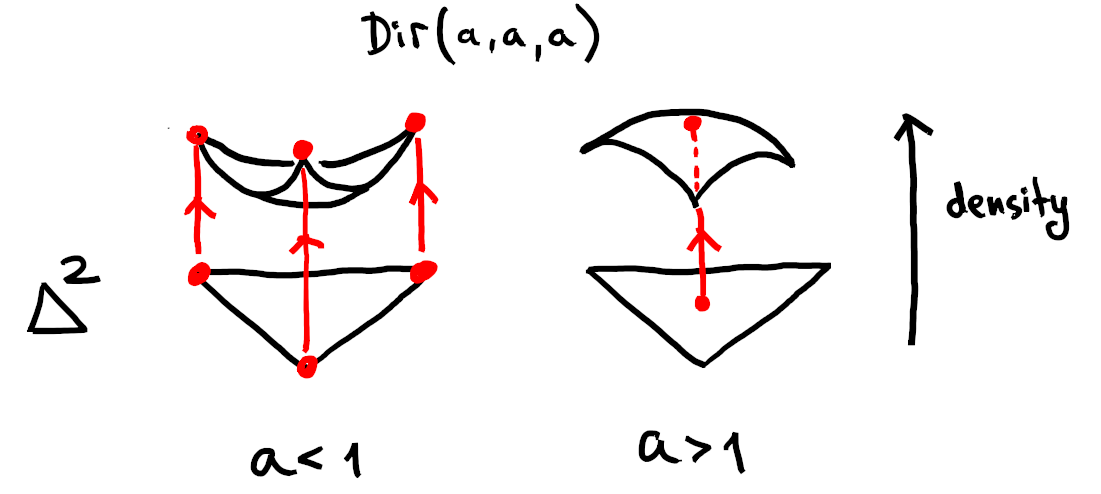 Dir(a,a,a)
density
Δ²
a<1
a>1